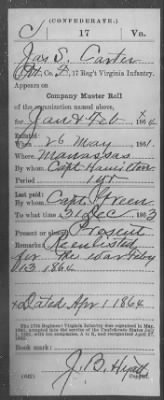 (CONFEDERATE.)
C 17 Va.
Jas S. Carter
Pvt, Co. F, 17 Reg't Virginia Infantry.
Appears on
Company Muster Roll
of the organization named above,
for Jan & Feb, 1864
Enlisted:
When 26 May, 1861
Where Manassas
By whom Capt Hamilton
Period 1 yr
Last paid:
By whom Capt Green
To what time 31 Dec, 1863
Present or absent Present
Remarks: Reenlisted
for the war Feby
13 1864
Dated Apr 1 1864
Book mark:
J. B. Hyatt
(642) Copyist.